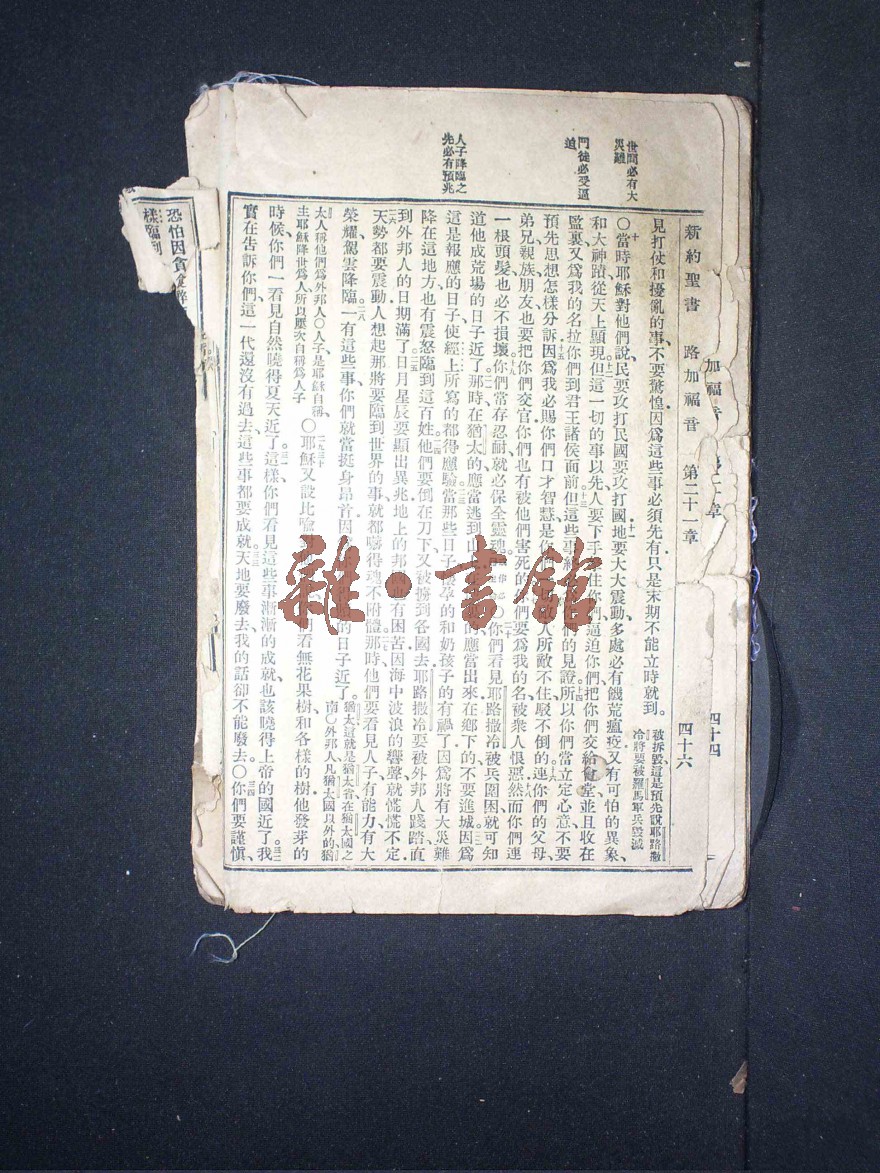 加福音
四十四
新約聖書 路加福音 第二十一章 四十六
世間必有大
災難
門徒必受逼
迫
人子降臨之
先必有預兆
見打仗和擾亂的事、不要驚惶因爲這些事必須先有只是末期不能立時就到。被拆毀、這是預先說耶路撒
冷將要被羅馬軍兵毀滅
〇當時耶穌對他們說民要攻打民國要攻打國地要大大震動多處必有饑荒瘟疫又有可怕的異象、
和大神蹟從天上顯現但這一切的事以先人要下手 住你們逼迫你們把你們交給會堂並且收在
監裏又爲我的名拉你們到君王諸侯面前但這些事 們的見證所以你們當立定心意不要
預先思想怎樣分訴因爲我必賜你們口才智慧是你 人所敵不住駁不倒的連你們的父母、
弟兄親族朋友也要把你們交官你們也有被他們害死的 們要爲我的名被衆人恨惡然而你們連
一根頭髮也必不損壞你們常存忍耐就必保全靈魂 〇你們看見耶路撒冷被兵圍困就可知
道他成荒場的日子近了那時在猶太的應當逃到山 的應當出來在鄉下的不要進城因爲
這是報應的日子使經上所寫的都得應驗當那些日子 孕的和奶孩子的有禍了因爲將有大災難
降在這地方也有震怒臨到這百姓他們要倒在刀下又被擄到各國去耶路撒冷要被外邦人踐踏直
到外邦人的日期滿了日月星辰要顯出異兆地上的邦國也有困苦因海中波浪的響聲就慌慌不定
天勢都要震動人想起那將要臨到世界的事就都嚇得魂不附體那時他們要看見人子有能力有大
榮耀駕雲降臨一有這些事你們就當挺身昂首因 的日子近了。猶太這就是猶太省在猶太國之
南〇外邦人凡猶太國以外的猶
太人稱他們爲外邦人〇人子是耶穌自稱、
主耶穌降世爲人所以屢次自稱爲人子
〇耶穌又設比喻 們看無花果樹和各樣的樹他發芽的
時候你們一看見自然曉得夏天近了這樣你們看見這些事漸漸的成就也該曉得上帝的國近了我
實在告訴你們這一代還沒有過去、這些事都要成就天地要廢去我的話卻不能廢去〇你們要謹愼、
恐怕因貪食醉
樣臨到
雜·書館